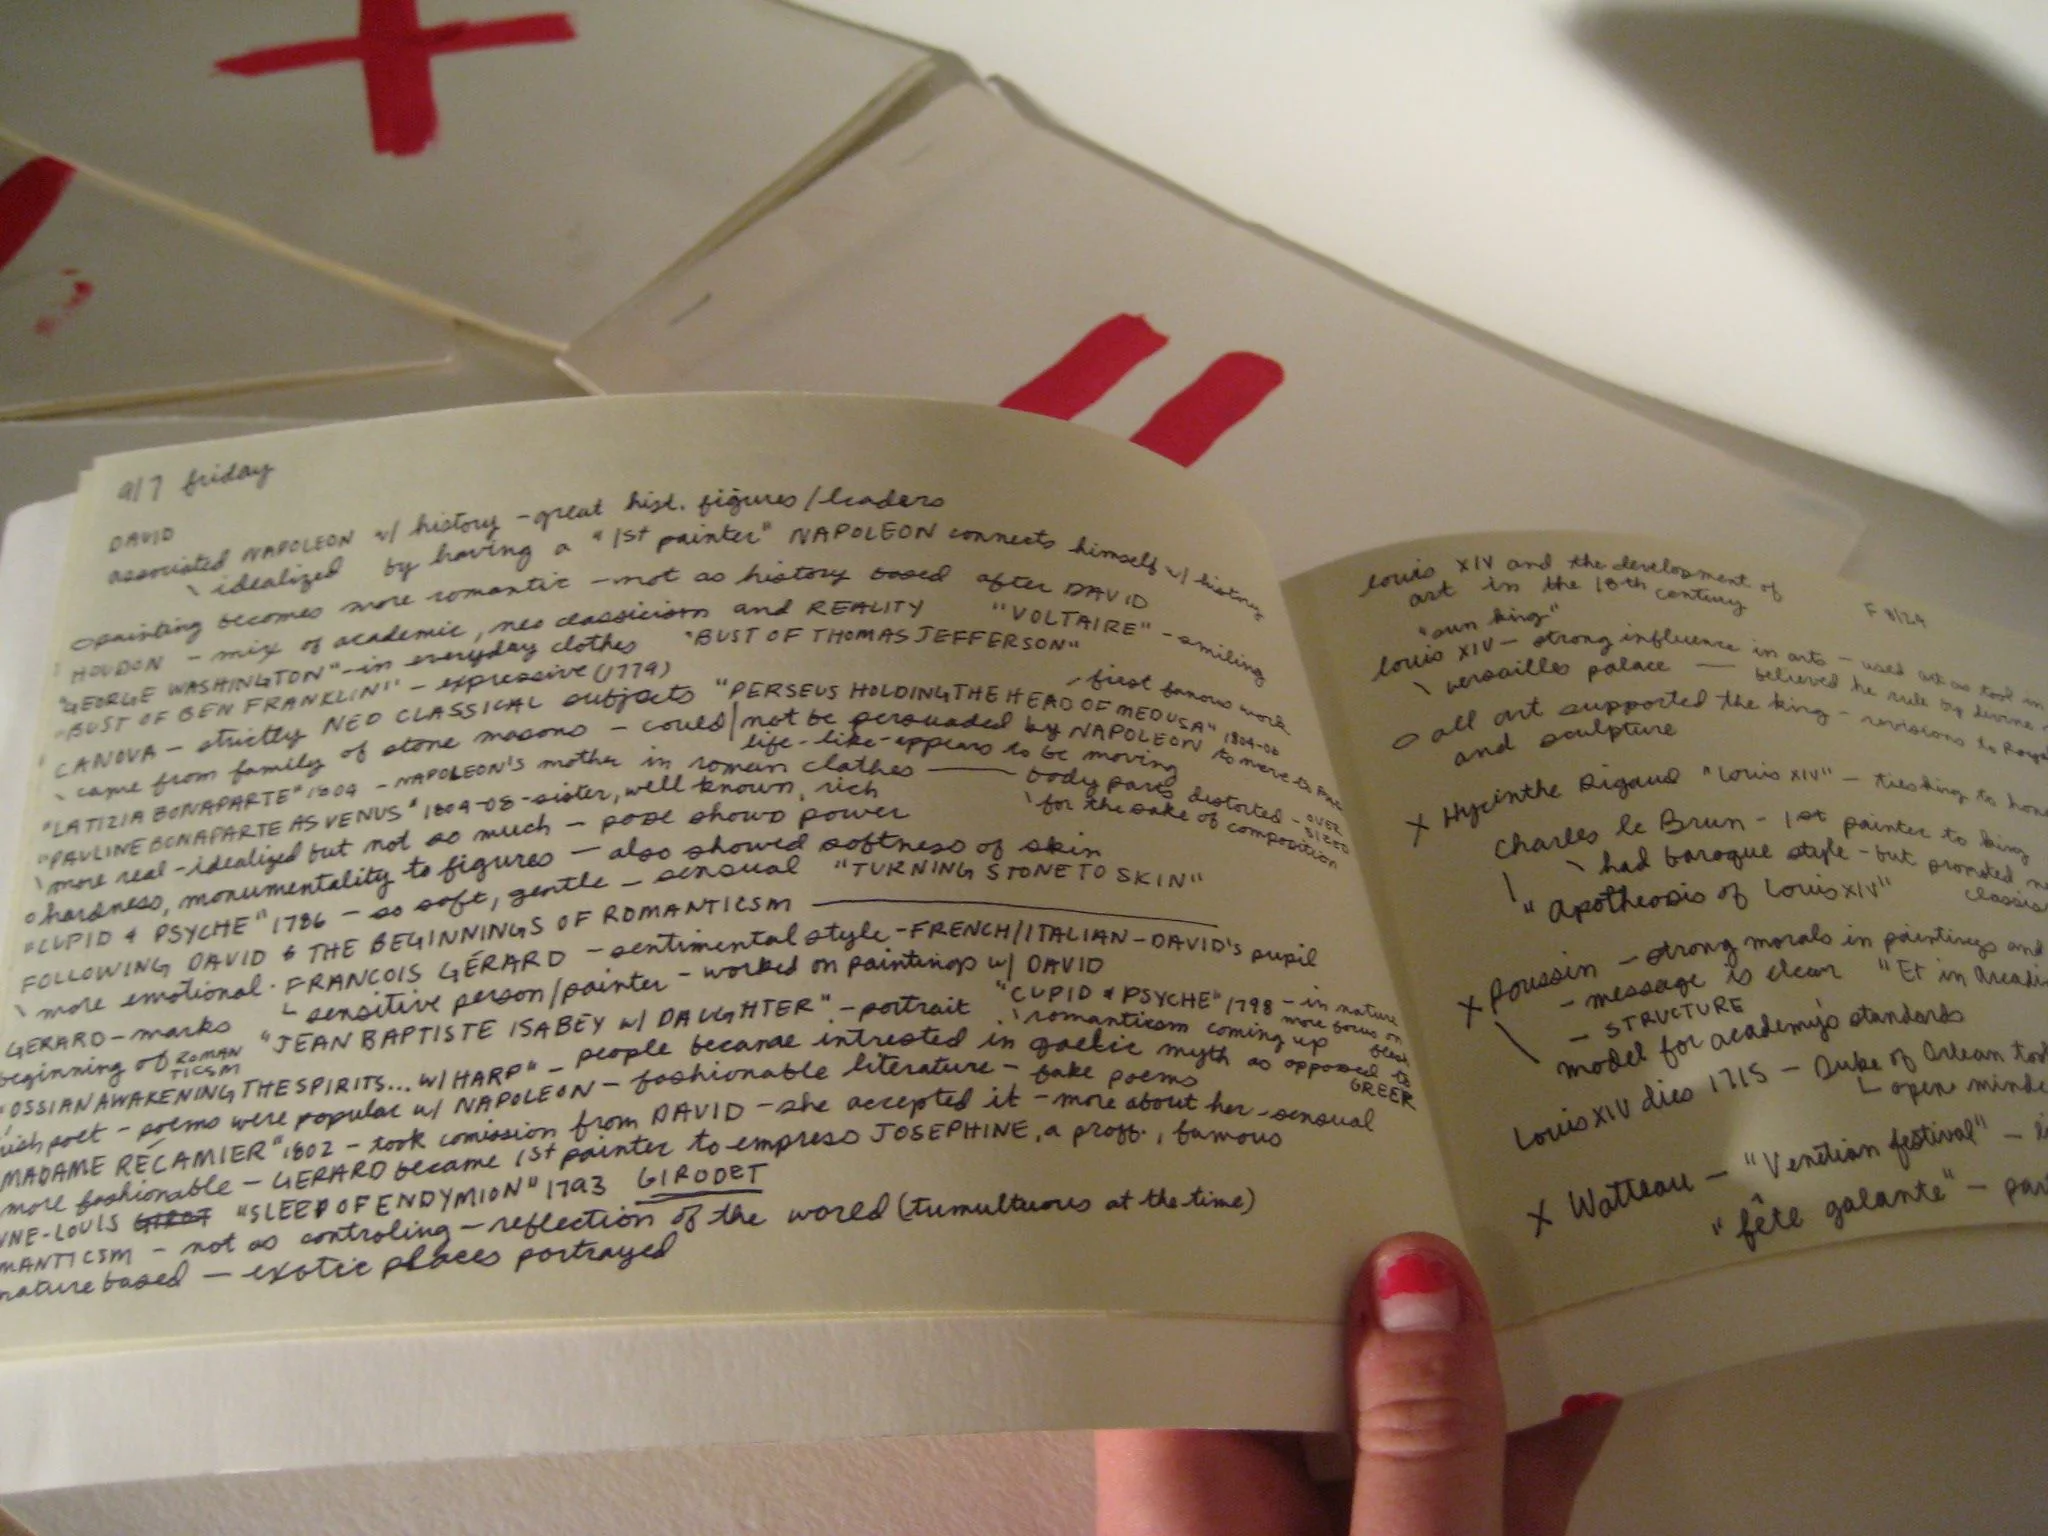 9/7 friday
DAVID
associated NAPOLEON w/ history - great hist. figures/leaders
\ idealized by having a "1st painter" NAPOLEON connects himself w/ history
painting becomes more romantic - not as history based after DAVID
HOUDON - mix of academic, neo classicism and REALITY "VOLTAIRE" - smiling
"GEORGE WASHINGTON" - in everyday clothes "BUST OF THOMAS JEFFERSON"
"BUST OF BEN FRANKLIN" - expressive (1779)
CANOVA - strictly NEO CLASSICAL subjects "PERSEUS HOLDING THE HEAD OF MEDUSA" 1804-06
first famous work
\ came from family of stone masons - could not be persuaded by NAPOLEON to move to
life-like-appears to be moving
"LATIZIA BONAPARTE" 1804 - NAPOLEON'S mother in roman clothes — body parts distorted - OVER SIZED
\ for the sake of composition
"PAULINE BONAPARTE AS VENUS" 1804-08 - sister, well known, rich
\ more real - idealized but not so much - pose shows power
o hardness, monumentality to figures - also showed softness of skin
"CUPID & PSYCHE" 1786 - so soft, gentle - sensual "TURNING STONE TO SKIN"
FOLLOWING DAVID & THE BEGINNINGS OF ROMANTICSM
\ more emotional · FRANCOIS GÉRARD - sentimental style - FRENCH/ITALIAN - DAVID'S pupil
sensitive person/painter - worked on paintings w/ DAVID
GERARD - marks beginning of ROMANTICSM
"JEAN BAPTISTE ISABEY w/ DAUGHTER" - portrait "CUPID & PSYCHE" 1798 - in nature
more focus on
\ romanticsm coming up
"OSSIAN AWAKENING THE SPIRITS... w/ HARP" - people became intrested in gaelic myth as opposed to GREEK
poet - poems were popular w/ NAPOLEON - fashionable literature - fake poems
MADAME RÉCAMIER" 1802 - took comission from DAVID - she accepted it - more about her - sensual
more fashionable - GERARD became 1st painter to empress JOSEPHINE, a proff., famous
NNE-LOUIS "SLEEP OF ENDYMION" 1793 GIRODET
MANTICSM - not as controling - reflection of the world (tumultuous at the time)
nature based - exotic places portrayed
louis XIV and the development of
art in the 18th century
F 8/24
"sun king"
louis XIV - strong influence in arts - used art as tool in
\ versailles palace — believed he rule by divine
o all art supported the king - revisions to
and sculpture
x Hycinthe Rigaud "Louis XIV" -
Charles le Brun - 1st painter to king
\ had baroque style - but promoted
"Apotheosis of Louis XIV"
x Poussin - strong morals in paintings and
- message is clear "Et in Arcadi
- STRUCTURE
\ model for academy's standards
Louis XIV dies 1715 - Duke of Orlean
open minde
x Watteau - "Venetian festival" -
"fête galante" -